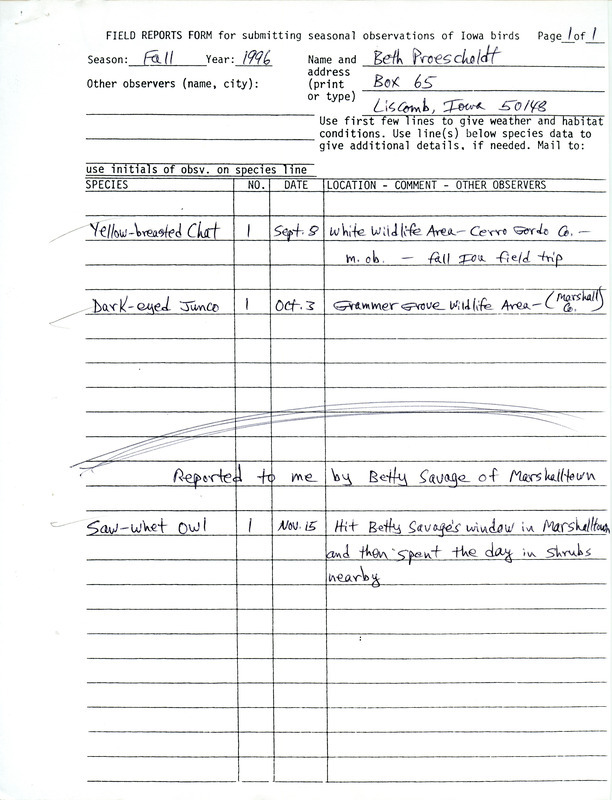 FIELD REPORTS FORM for submitting seasonal observations of Iowa birds Page 1 of 1
Season: Fall Year: 1996 Name and address (print or type) Beth Proescholdt
Box 65
Liscomb, Iowa 50148
Other observers (name, city):
Use first few lines to give weather and habitat
conditions. Use line(s) below species data to
give additional details, if needed. Mail to:
use initials of obsv. on species line
SPECIES NO. DATE LOCATION - COMMENT - OTHER OBSERVERS
Yellow-breasted Chat 1 Sept. 8 White Wildlife Area - Cerro Gordo Co. -
m. ob. - fall IOU field trip
Dark-eyed Junco 1 Oct. 3 Grammer Grove Wildlife Area - (Marshall Co.)
Reported to me by Betty Savage of Marshalltown
Saw-whet Owl 1 Nov. 15 Hit Betty Savage's window in Marshalltown
and then spent the day in shrubs
nearby